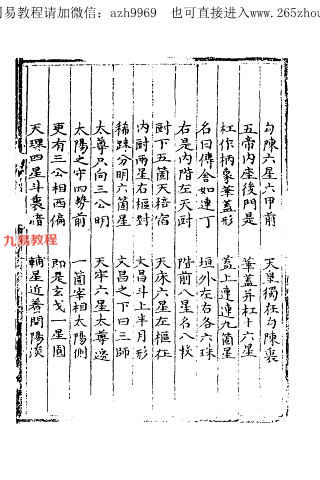 易教程请加微信：azh9969 也可直接进入www.265zhou
勾陳六星六甲前 天皇獨在勾陳裏
五帝內座後門是 華蓋并杠十六星
杠作柄象華蓋形 蓋上連連九箇星
名曰傳舍如連丁 垣外左右各六珠
右是內階左天厨 階前八星名八
厨下五箇天棓宿 天床六星左樞在
內厨兩星右樞對 文昌斗上半月形
稀踈分明六箇星 文昌之下曰三師
太尊只向三公明 天牢六星太尊邊
太陽之守四勢前 一箇宰相太陽側
更有三公相西偏 即是玄戈一星圓
天理四星斗裏暗 輔星近著開陽淡
九易教程